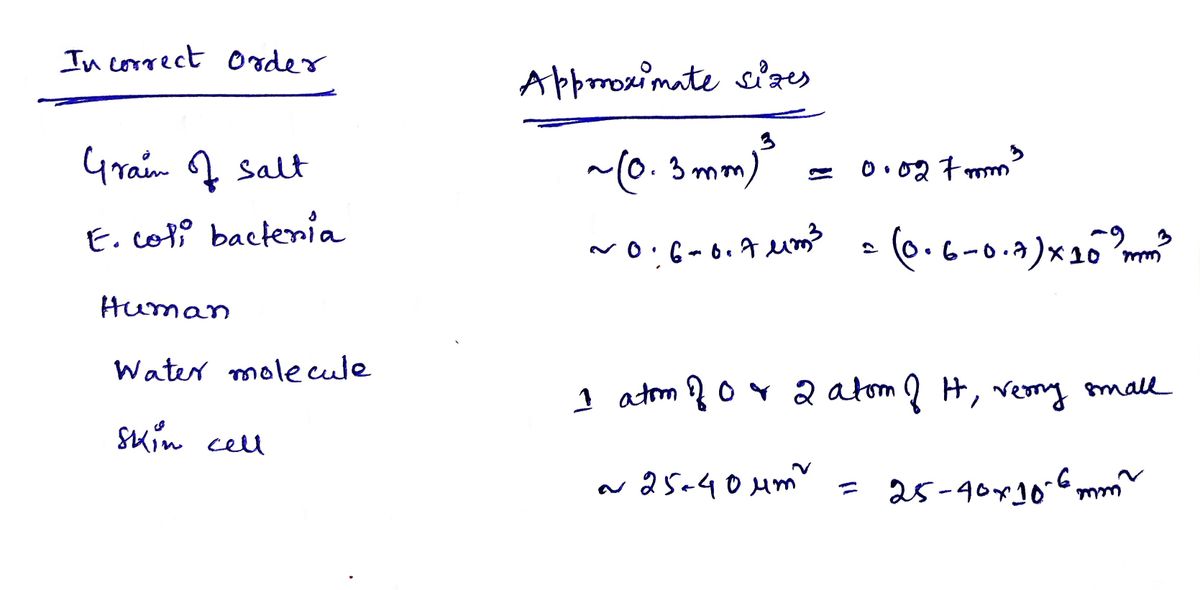 Incorrect Order
Approximate sizes
Grain of salt
~(0.3mm)³ = 0.027mm³
E. coli bacteria
~0.6-0.7 μm³ = (0.6-0.7)×10⁻⁹mm³
Human
Water molecule
1 atom of O & 2 atom of H, very small
Skin cell
~25-40 μm² = 25-40×10⁻⁶mm²